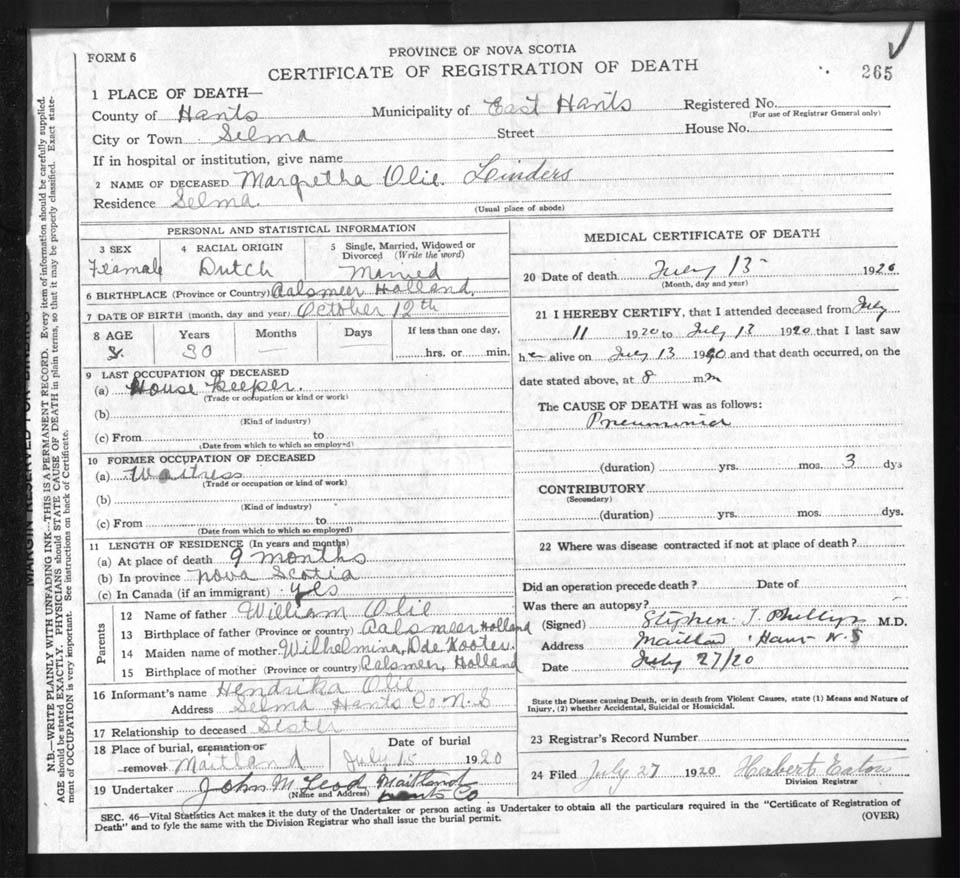 FORM 6
PROVINCE OF NOVA SCOTIA
CERTIFICATE OF REGISTRATION OF DEATH
265
1 PLACE OF DEATH—
County of Hants Municipality of East Hants Registered No.
(For use of Registrar General only)
City or Town Selma Street House No.
If in hospital or institution, give name
2 NAME OF DECEASED Margretha Olie Linders
Residence Selma.
(Usual place of abode)
PERSONAL AND STATISTICAL INFORMATION
3 SEX 4 RACIAL ORIGIN 5 Single, Married, Widowed or Divorced (Write the word)
Feemale Dutch Married
6 BIRTHPLACE (Province or Country) Aalsmeer Holland,
7 DATE OF BIRTH (month, day and year) October 12th
8 AGE Years Months Days If less than one day,
30 — — hrs. or min.
9 LAST OCCUPATION OF DECEASED
(a) House keeper.
(Trade or occupation or kind or work)
(b)
(Kind of industry)
(c) From to
(Date from which to which so employed)
10 FORMER OCCUPATION OF DECEASED
(a) Waitress
(Trade or occupation or kind of work)
(b)
(Kind of industry)
(c) From to
(Date from which to which so employed)
11 LENGTH OF RESIDENCE (In years and months)
(a) At place of death 9 months
(b) In province Nova Scotia
(c) In Canada (if an immigrant) yes
Parents
12 Name of father William Olie
13 Birthplace of father (Province or country) Aalsmeer Holland
14 Maiden name of mother Wilhelmina, Dde Kooter.
15 Birthplace of mother (Province or country) Aalsmeer, Holland
16 Informant's name Hendrika Olie
Address Selma Hants Co N.S
17 Relationship to deceased Sister
18 Place of burial, cremation or removal Maitland Date of burial July 15 1920
19 Undertaker John McLeod Maitland
(Name and Address) Hants Co
MEDICAL CERTIFICATE OF DEATH
20 Date of death July 13 1920
(Month, day and year)
21 I HEREBY CERTIFY, that I attended deceased from July
11 1920 to July 13 1920 that I last saw
her alive on July 13 1920 and that death occurred, on the
date stated above, at 8 m.
The CAUSE OF DEATH was as follows:
Pneuminia
(duration) yrs. mos. 3 dys
CONTRIBUTORY
(Secondary)
(duration) yrs. mos. dys.
22 Where was disease contracted if not at place of death?
Did an operation precede death? Date of
Was there an autopsy?
(Signed) Stephen J. Phillips M.D.
Address Maitland Hants N.S
Date July 27/20
State the Disease causing Death, or in death from Violent Causes, state (1) Means and Nature of
Injury, (2) whether Accidental, Suicidal or Homicidal.
23 Registrar's Record Number
24 Filed July 27 1920 Herbert Eaton
Division Registrar
SEC. 46—Vital Statistics Act makes it the duty of the Undertaker or person acting as Undertaker to obtain all the particulars required in the "Certificate of Registration of
Death" and to fyle the same with the Division Registrar who shall issue the burial permit.
(OVER)
MARGIN RESERVED FOR BINDING
N.B.—WRITE PLAINLY WITH UNFADING INK—THIS IS A PERMANENT RECORD. Every item of information should be carefully supplied.
AGE should be stated EXACTLY. PHYSICIANS should STATE CAUSE OF DEATH in plain terms, so that it may be properly classified. Exact state-
ment of OCCUPATION is very important. See instructions on back of Certificate.